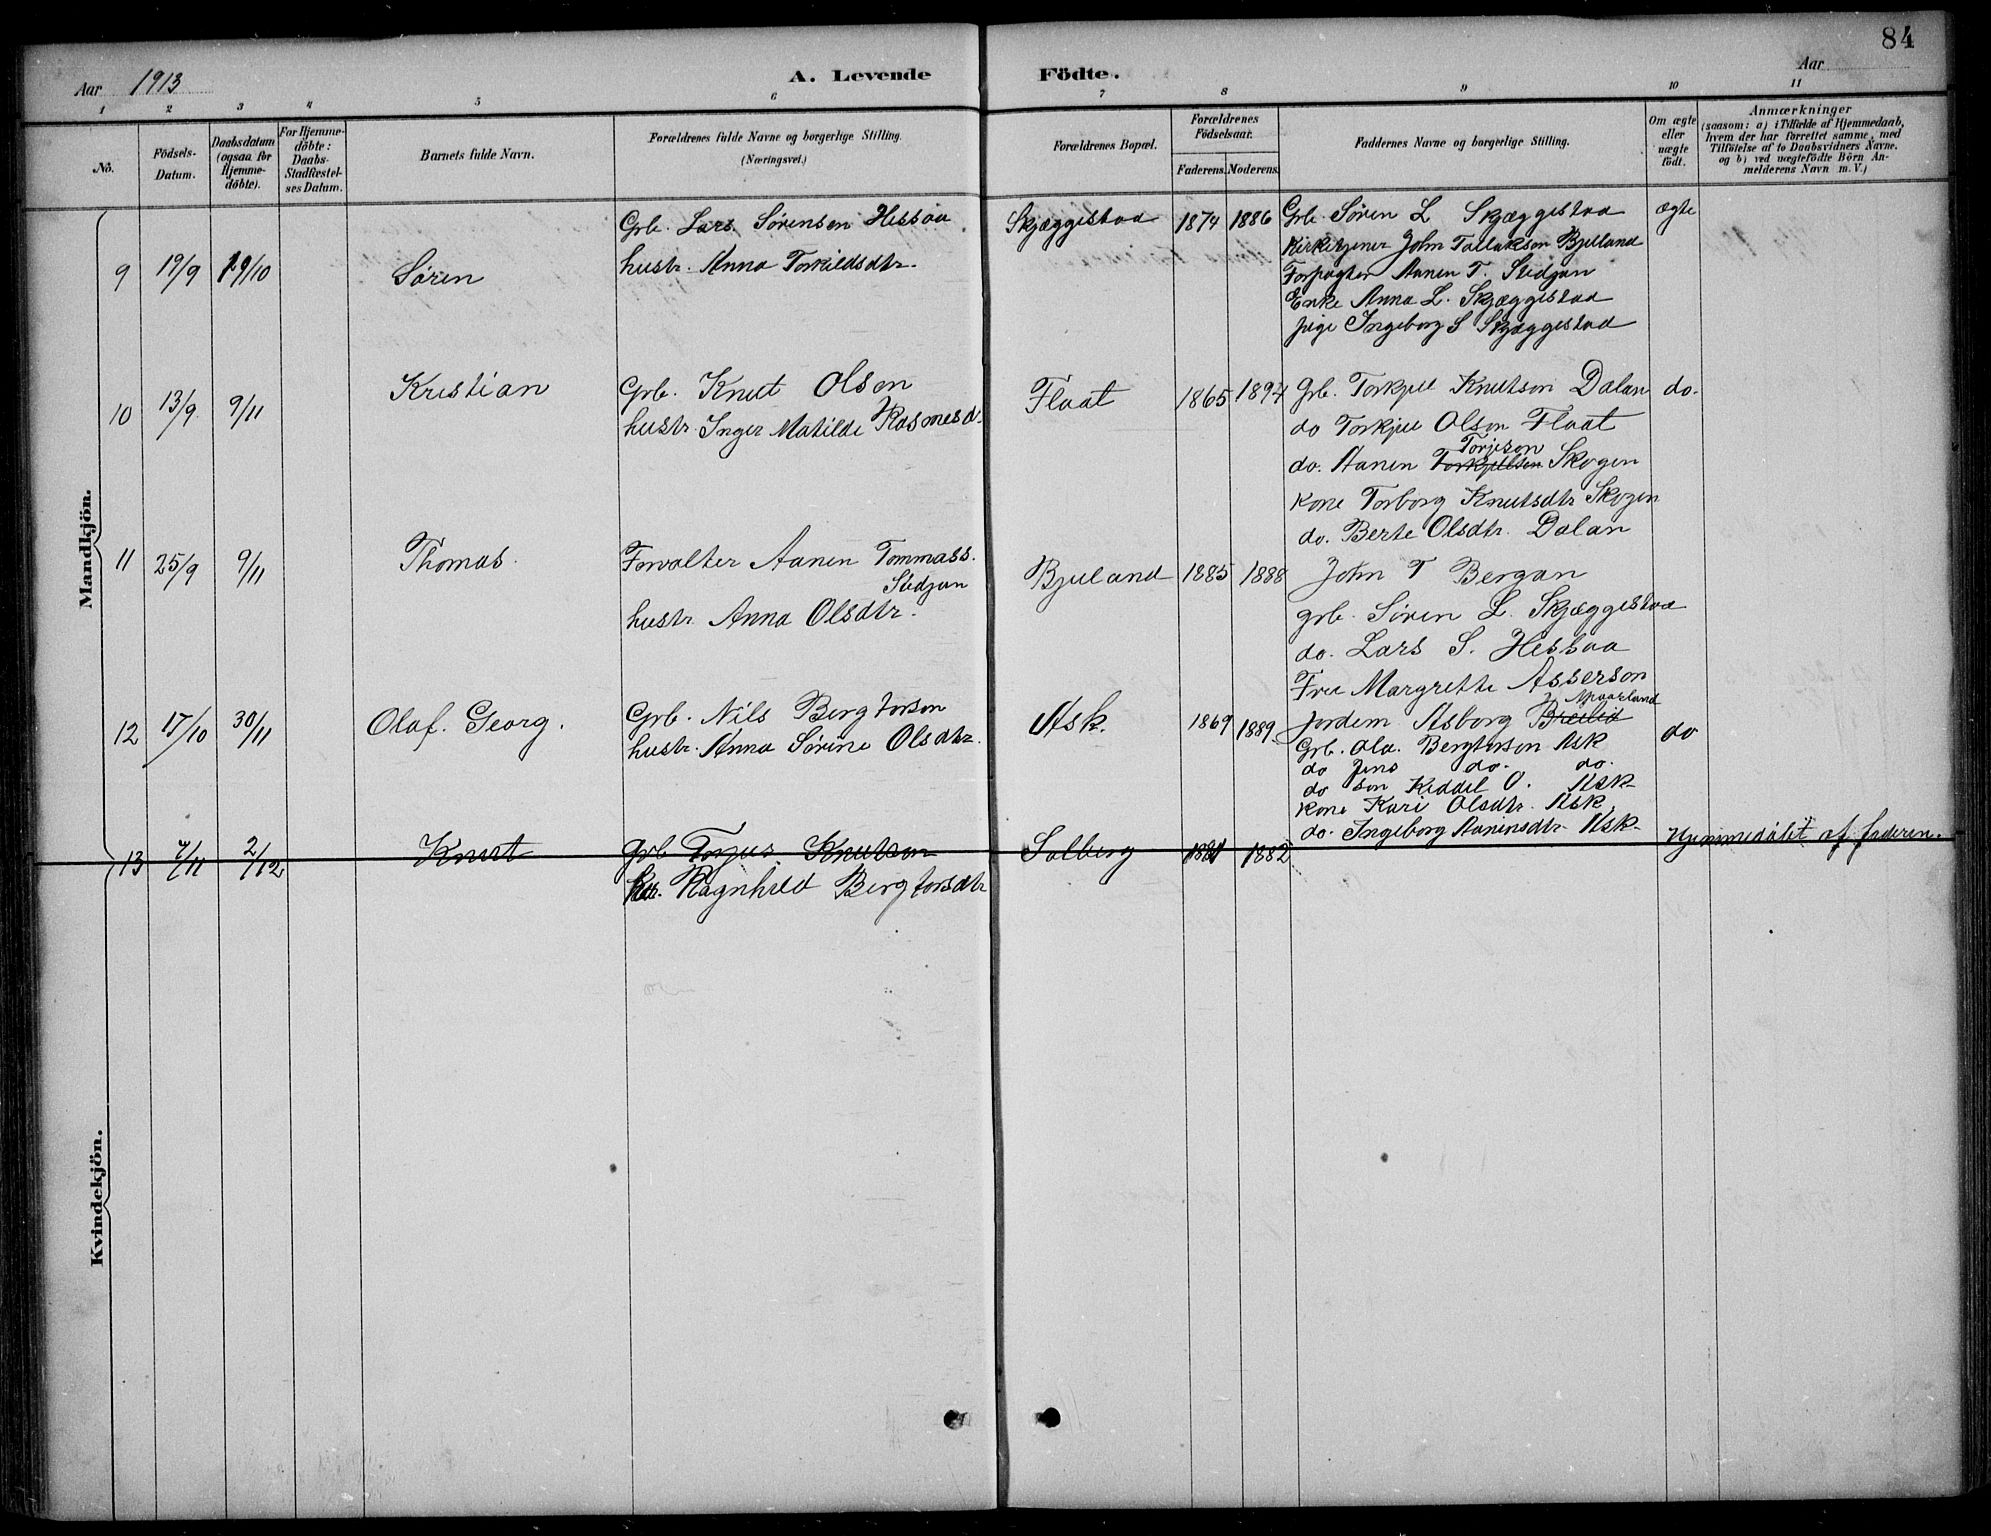 84
Aar 1913
A. Levende Födte.
Aar
1 2 3 4 5 6 7 8 9 10 11
No.
Födsels-Datum.
Daabsdatum (ogsaa for Hjemme-döbte).
For Hjemme-döbte: Daabs-Stadfæstel-ses Datum.
Barnets fulde Navn.
Forældrenes fulde Navne og borgerlige Stilling.
(Næringsvei.)
Forældrenes Bopæl.
Forældrenes Födselsaar.
Faderens. Moderens.
Faddernes Navne og borgerlige Stilling.
Om ægte eller uægte födt.
Anmærkninger
(saasom: a) i Tilfælde af Hjemmedaab,
hvem der har forrettet samme, med
Tilföielse af to Daabsvidners Navne.
og b) ved uægtefödte Börn An-
melderens Navn m. V.)
Mandkjön.
9 19/9 19/10 Søren
Grb. Lars Sørensen Hessaa
hustr. Anna Torkildsdtr.
Skjæggestad 1874 1886
Grb. Søren L Skjæggestad
Kirketjener John Tallakson Bjelland
Forpagter Aanen T. Stedjan
Enke Anna L. Skjæggestad
pige Ingeborg S Skjæggestad
ægte
10 13/9 9/11 Kristian
Grb. Knut Olsen
hustr. Inger Matilde Rasmusd.
Flaat 1865 1894
Grb. Torkjell Knutson Dalan
do Torkjell Olson Flaat
Torjeson
do. Aanen Torkjellsen Skogen
kone Torborg Knutsdtr Skogen
do. Berte Olsdtr. Dalan
do.
11 25/9 9/11 Thomas.
Forvalter Aanen Tommass.
Stedjan
hustr. Anna Olsdtr.
Bjelland 1885 1888
John T Bergan
grb. Søren L. Skjæggestad
do. Lars S. Hessaa
Fru Margrethe Asserson
12 17/10 30/11 Olaf. Georg.
Grb. Nils Bergtorson
hustr. Anna Sørine Olsdtr.
Ask. 1869 1889
Jordem Asborg Breilid
Grb. Ola. Bergtorson Ask
do Jens do. do.
do son Keddel O. Ask
kone Kari Olsdtr. Ask.
do. Ingeborg Aanensdtr Ask
do
13 7/11 2/12 Knut
Grb Torjus Knutson
Ragnhild Bergtorsdtr
Solberg 1881 1882
Hjemmedøbt af faderen.
Kvindekjön.